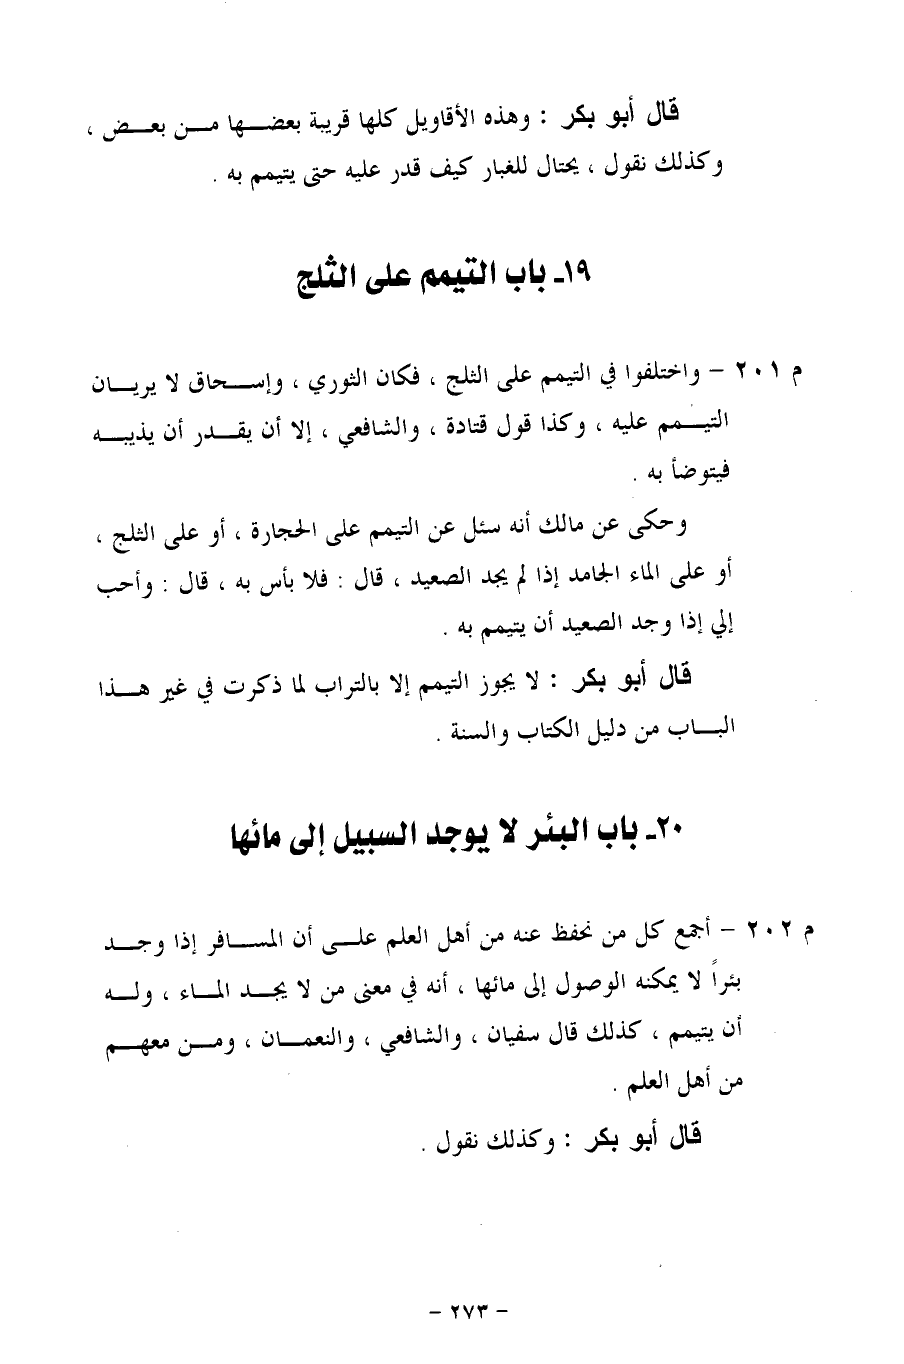 قال أبو بكر : وهذه الأقاويل كلها قريبة بعضها من بعض ،
وكذلك نقول ، يحتال للغبار كيف قدر عليه حتى يتيمم به .
١٩ـ باب التيمم على الثلج
م ٢٠١ – واختلفوا في التيمم على الثلج ، فكان الثوري ، وإسحاق لا يريان
التيمم عليه ، وكذا قول قتادة ، والشافعي ، إلا أن يقدر أن يذيبه
فيتوضأ به .
وحكى عن مالك أنه سئل عن التيمم على الحجارة ، أو على الثلج ،
أو على الماء الجامد إذا لم يجد الصعيد ، قال : فلا بأس به ، قال : وأحب
إلي إذا وجد الصعيد أن يتيمم به .
قال أبو بكر : لا يجوز التيمم إلا بالتراب لما ذكرت في غير هذا
الباب من دليل الكتاب والسنة .
٢٠ـ باب البئر لا يوجد السبيل إلى مائها
م ٢٠٢ – أجمع كل من نحفظ عنه من أهل العلم على أن المسافر إذا وجد
بئراً لا يمكنه الوصول إلى مائها ، أنه في معنى من لا يجد الماء ، وله
أن يتيمم ، كذلك قال سفيان ، والشافعي ، والنعمان ، ومن معهم
من أهل العلم .
قال أبو بكر : وكذلك نقول .
– ٢٧٣ –